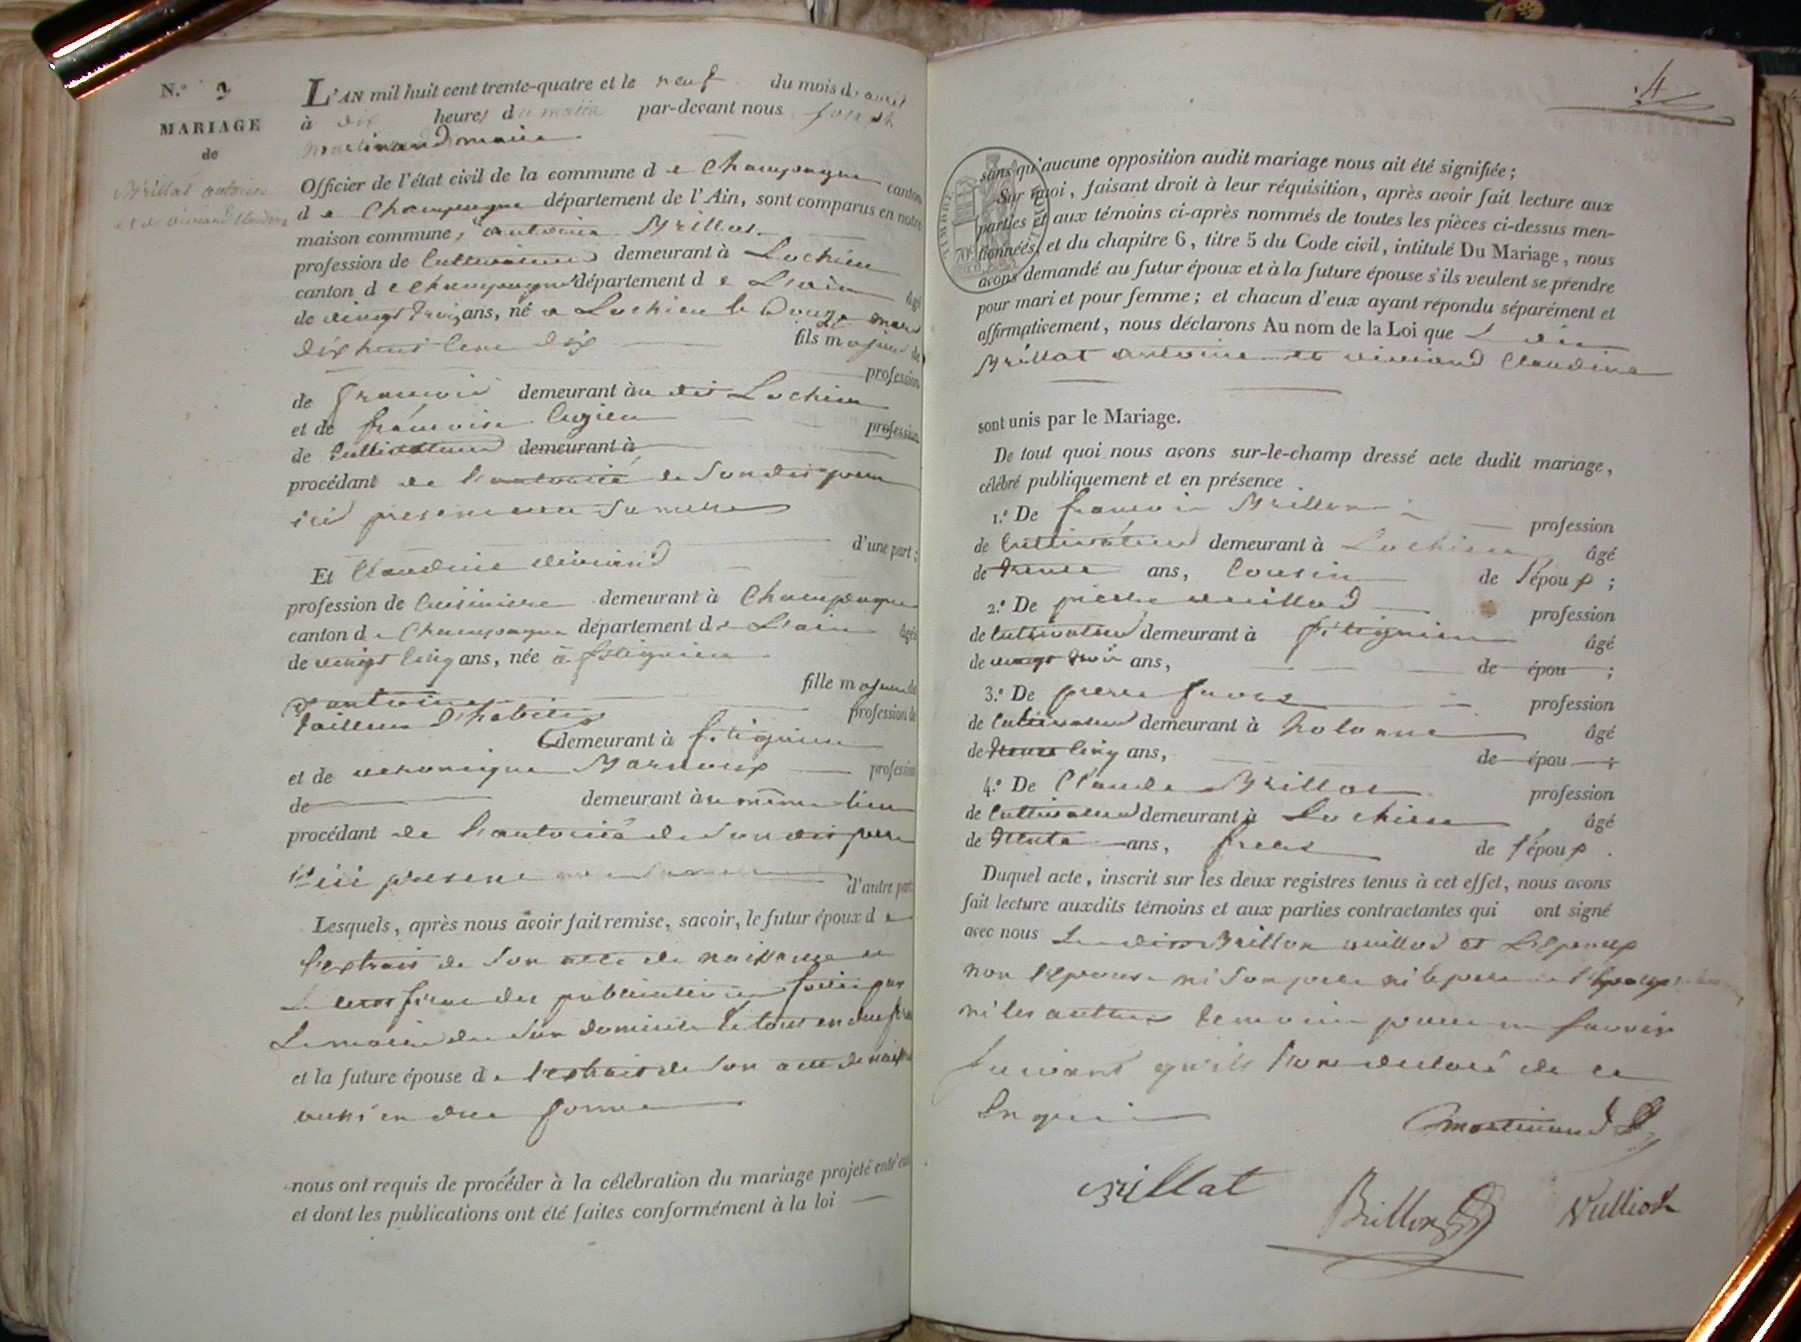 N.º 2
MARIAGE
de
Brillat antoine
et de viviand Claudine
L'AN mil huit cent trente-quatre et le neuf du mois d'avril
à dix heures du matin par-devant nous joseph
martinand maire
Officier de l'état civil de la commune de Champagne canton
de Champagne département de l'Ain, sont comparus en notre
maison commune, antoine Brillat
profession de Cultivateur demeurant à Lochieu
canton de Champagne département de L'ain âgé
de vingt trois ans, né à Lochieu le Douze mars
dix huit cent dix fils majeur de
profession
de françois demeurant au dit Lochieu
et de françoise lugien profession
de Cultivateur demeurant à
procédant de l'autorité de Son dit père
ici présent
d'une part;
Et Claudine viviand
profession de Cuisiniere demeurant à Champagne
canton de Champagne département de L'ain âgée
de vingt cinq ans, née à fitignieu
fille majeure de
d'antoine profession de
tailleur d'habits
demeurant à fitignieu
et de veronique profession
de demeurant au même lieu
procédant de l'autorité de Son dit père
ici présent d'autre part
Lesquels, après nous avoir fait remise, savoir, le futur époux de
l'extrait de Son acte de naissance et
le certificat des publications faites par
Le maire de Son domicile le tout en due forme
et la future épouse de l'extrait de Son acte de naiss
aussi en due forme
nous ont requis de procéder à la célébration du mariage projeté entr'eux
et dont les publications ont été faites conformément à la loi
4
TIMBRE
sans qu'aucune opposition audit mariage nous ait été signifiée;
Sur quoi, faisant droit à leur réquisition, après avoir fait lecture aux
parties et aux témoins ci-après nommés de toutes les pièces ci-dessus men-
tionnées, et du chapitre 6, titre 5 du Code civil, intitulé Du Mariage, nous
avons demandé au futur époux et à la future épouse s'ils veulent se prendre
pour mari et pour femme; et chacun d'eux ayant répondu séparément et
affirmativement, nous déclarons Au nom de la Loi que
Brillat antoine et viviand Claudine
sont unis par le Mariage.
De tout quoi nous avons sur-le-champ dressé acte dudit mariage,
célébré publiquement et en présence
1.º De françois Brillon profession
de Cultivateur demeurant à Lochieu âgé
de trente ans, Cousin de l'époux;
2.º De profession
de Cultivateur demeurant à fitignieu âgé
de vingt trois ans, de épou ;
3.º De pierre profession
de Cultivateur demeurant à âgé
de trente cinq ans, de épou ;
4.º De Claude Brillat profession
de Cultivateur demeurant à Lochieu âgé
de trente ans, frere de l'époux.
Duquel acte, inscrit sur les deux registres tenus à cet effet, nous avons
fait lecture auxdits témoins et aux parties contractantes qui ont signé
avec nous Brillon et L'Epoux
non l'épouse ni Son père ni le père
ni les autres temoins pour ne Savoir
Suivant qu'ils l'ont declaré de ce
Enquis
martinand
Brillat
Brillon
Vulliod